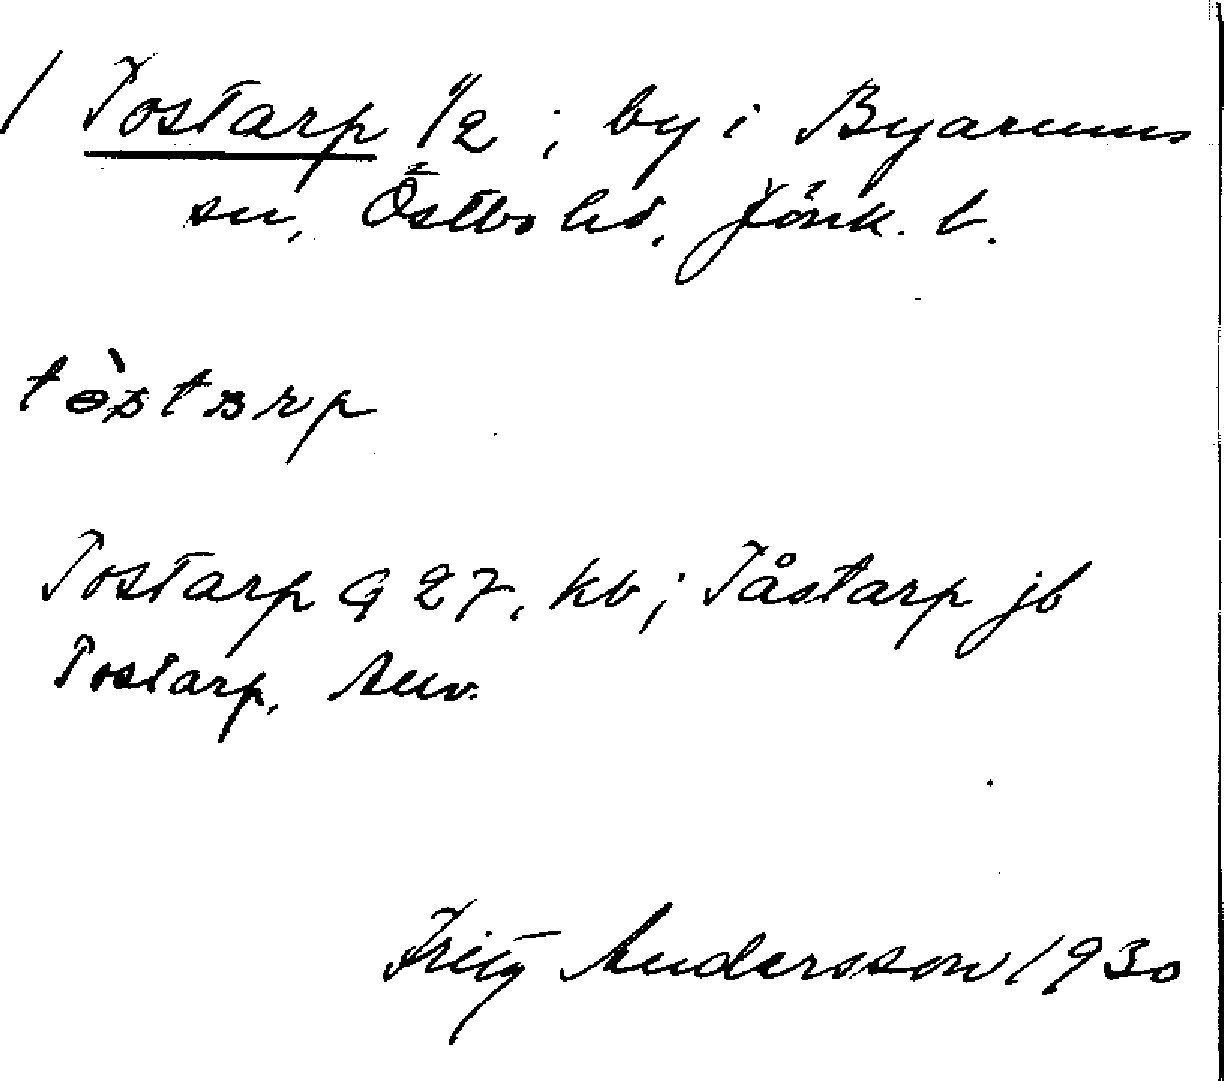 / Tostarp 1/2 ; by i Byarums
sn, Östbo hd, Jönk. l.
tòstarp
Tostarp G 27, kb ; Tåstarp jb
Tostarp, Auv.
Fritz Andersson 1930